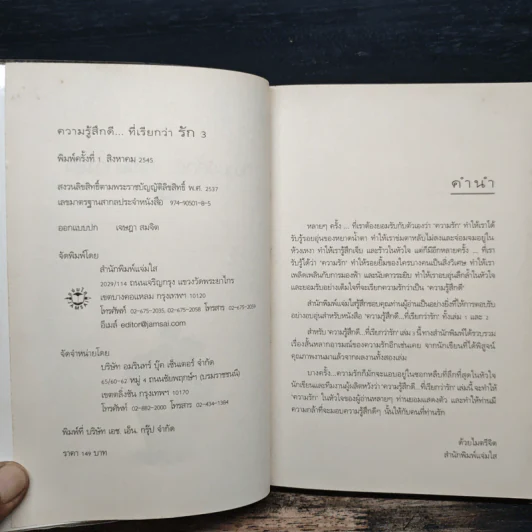 ความรู้สึกดี... ที่เรียกว่า รัก 3
พิมพ์ครั้งที่ 1 สิงหาคม 2545
สงวนลิขสิทธิ์ตามพระราชบัญญัติลิขสิทธิ์ พ.ศ. 2537
เลขมาตรฐานสากลประจำหนังสือ 974-90501-8-5
ออกแบบปก เจษฎา สมจิต
จัดพิมพ์โดย
สำนักพิมพ์แจ่มใส
2029/114 ถนนเจริญกรุง แขวงวัดพระยาไกร
เขตบางคอแหลม กรุงเทพฯ 10120
โทรศัพท์ 02-675-2035, 02-675-2058 โทรสาร 02-675-2039
อีเมล์ editor@jamsai.com
จัดจำหน่ายโดย
บริษัท อมรินทร์ บุ๊ค เซ็นเตอร์ จำกัด
65/60-62 หมู่ 4 ถนนชัยพฤกษ์ฯ (บรมราชชนนี)
เขตตลิ่งชัน กรุงเทพฯ 10170
โทรศัพท์ 02-882-2000 โทรสาร 02-434-1384
พิมพ์ที่ บริษัท เอช. เอ็น. กรุ๊ป จำกัด
ราคา 149 บาท
คำนำ
หลายๆ ครั้ง ... ที่เราต้องยอมรับกับตัวเองว่า 'ความรัก' ทำให้เราได้
รับรู้รอยอุ่นของหยาดน้ำตา ทำให้เราข่มตาหลับไม่ลงและจ่อมจมอยู่ใน
ห้วงเหงา ทำให้เรารู้สึกเจ็บ และร้าวในหัวใจ แต่ก็มีอีกหลายครั้ง ... ที่เรา
รับรู้ได้ว่า 'ความรัก' ทำให้รอยยิ้มของใครบางคนเป็นสิ่งวิเศษ ทำให้เรา
เพลิดเพลินกับการมองฟ้า และนับดาวระยิบ ทำให้เราอบอุ่นลึกล้ำในหัวใจ
และยอมรับอย่างเต็มใจที่จะเรียกความรักว่าเป็น 'ความรู้สึกดี'
สำนักพิมพ์แจ่มใสรู้สึกขอบคุณท่านผู้อ่านเป็นอย่างยิ่งที่ให้การตอบรับ
อย่างอบอุ่นสำหรับหนังสือ 'ความรู้สึกดี...ที่เรียกว่ารัก' ทั้งเล่ม 1 และ 2
สำหรับ 'ความรู้สึกดี...ที่เรียกว่ารัก' เล่ม 3 นี้ทางสำนักพิมพ์ได้รวบรวม
เรื่องสั้นหลากอารมณ์ของความรักอีกเช่นเคย จากนักเขียนที่ได้พิสูจน์
คุณภาพงานมาแล้วจากผลงานทั้งสองเล่ม
บางครั้ง...ความรักก็มักจะแอบอยู่ในซอกหลืบที่ลึกที่สุดในหัวใจ
นักเขียนและทีมงานผู้ผลิตหวังว่า 'ความรู้สึกดี...ที่เรียกว่ารัก' เล่มนี้ จะทำให้
'ความรัก' ในหัวใจของผู้อ่านหลายๆ ท่านยอมแสดงตัว และทำให้ท่านมี
ความกล้าที่จะมอบความรู้สึกดีๆ นั้นให้กับคนที่ท่านรัก
ด้วยไมตรีจิต
สำนักพิมพ์แจ่มใส